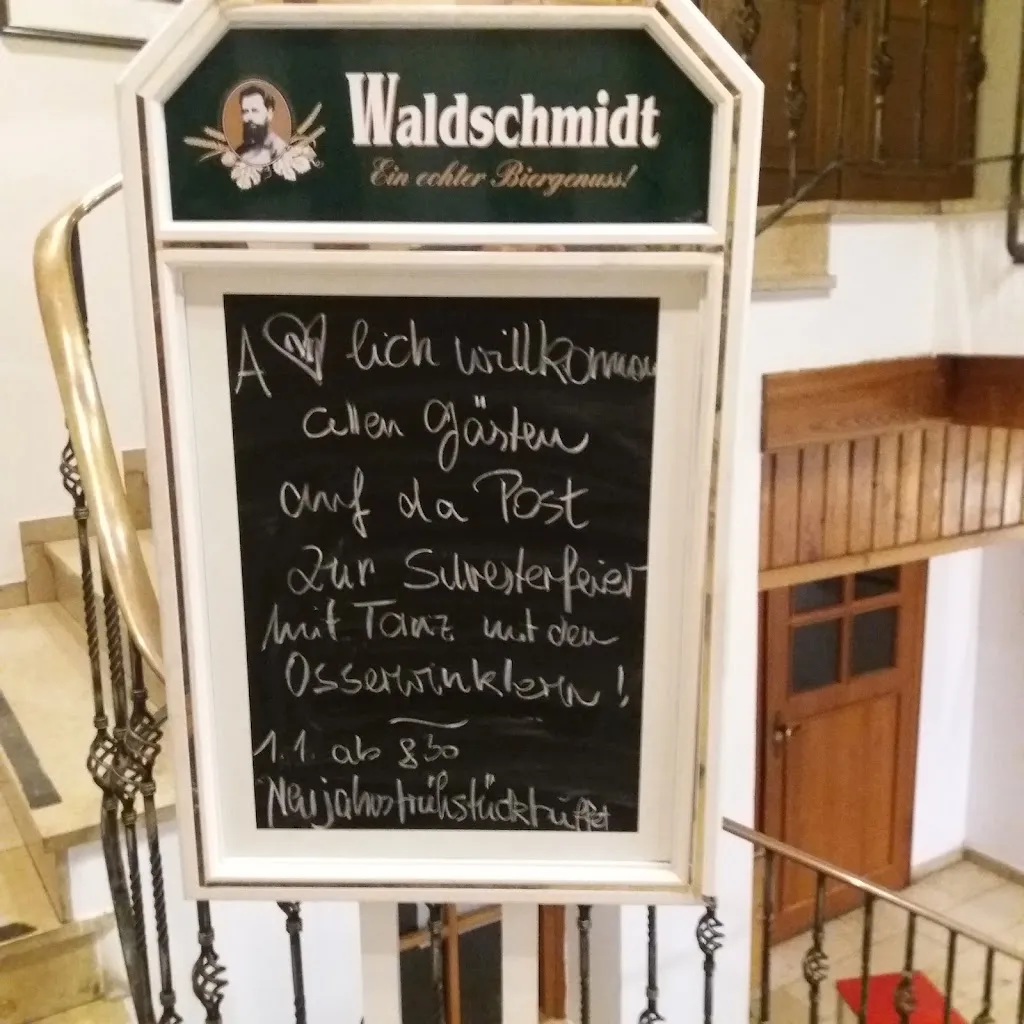 Waldschmidt
Ein echter Biergenuss!
A ♥lich willkommen
allen Gästen
auf da Post
zur Silvesterfeier
mit Tanz mit den
Osserwinklern!
1.1. ab 8³⁰
Neujahrsfrühstücksbüffet